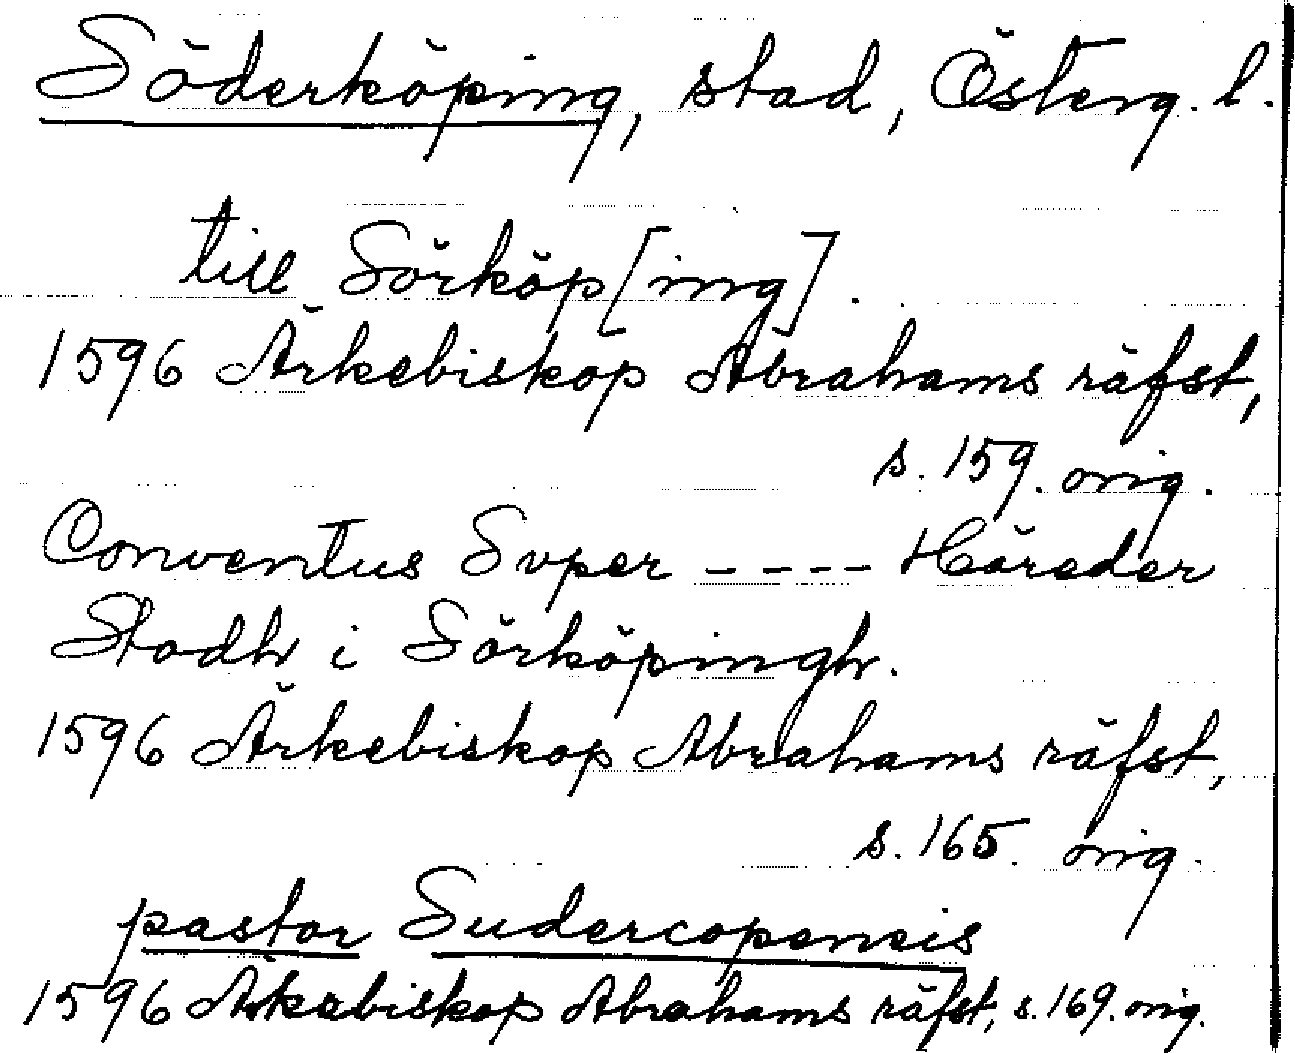 Söderköping, stad, Österg. l.
till Sörköp[ing].
1596 Ärkebiskop Abrahams räfst,
s. 159. orig.
Conventus Svper ---- Häreder
Stadh i Sörköpingh.
1596 Ärkebiskop Abrahams räfst,
s. 165. orig.
pastor Sudercopensis
1596 Ärkebiskop Abrahams räfst, s. 169. orig.